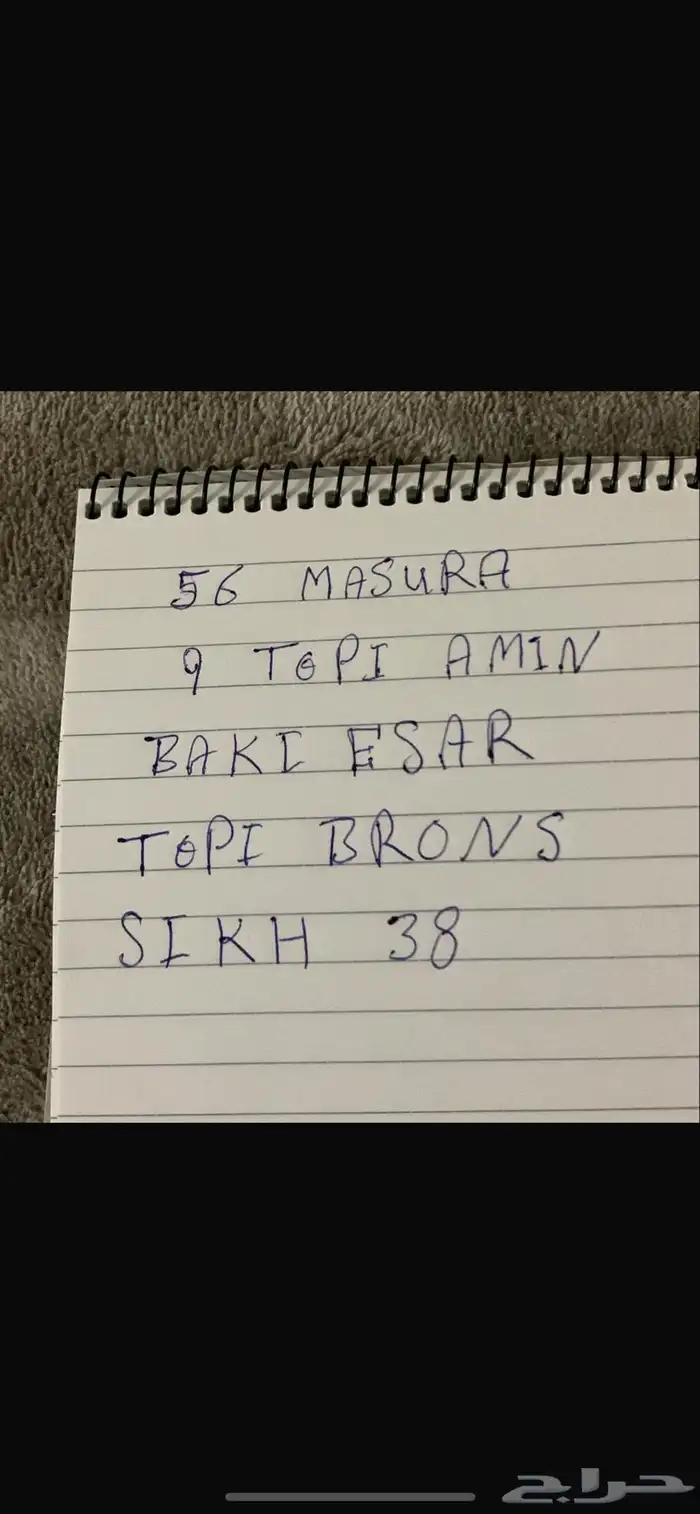 56 MASURA
9 TOPI AMIN
BAKI ESAR
TOPI BRONS
SIKH 38
حراج